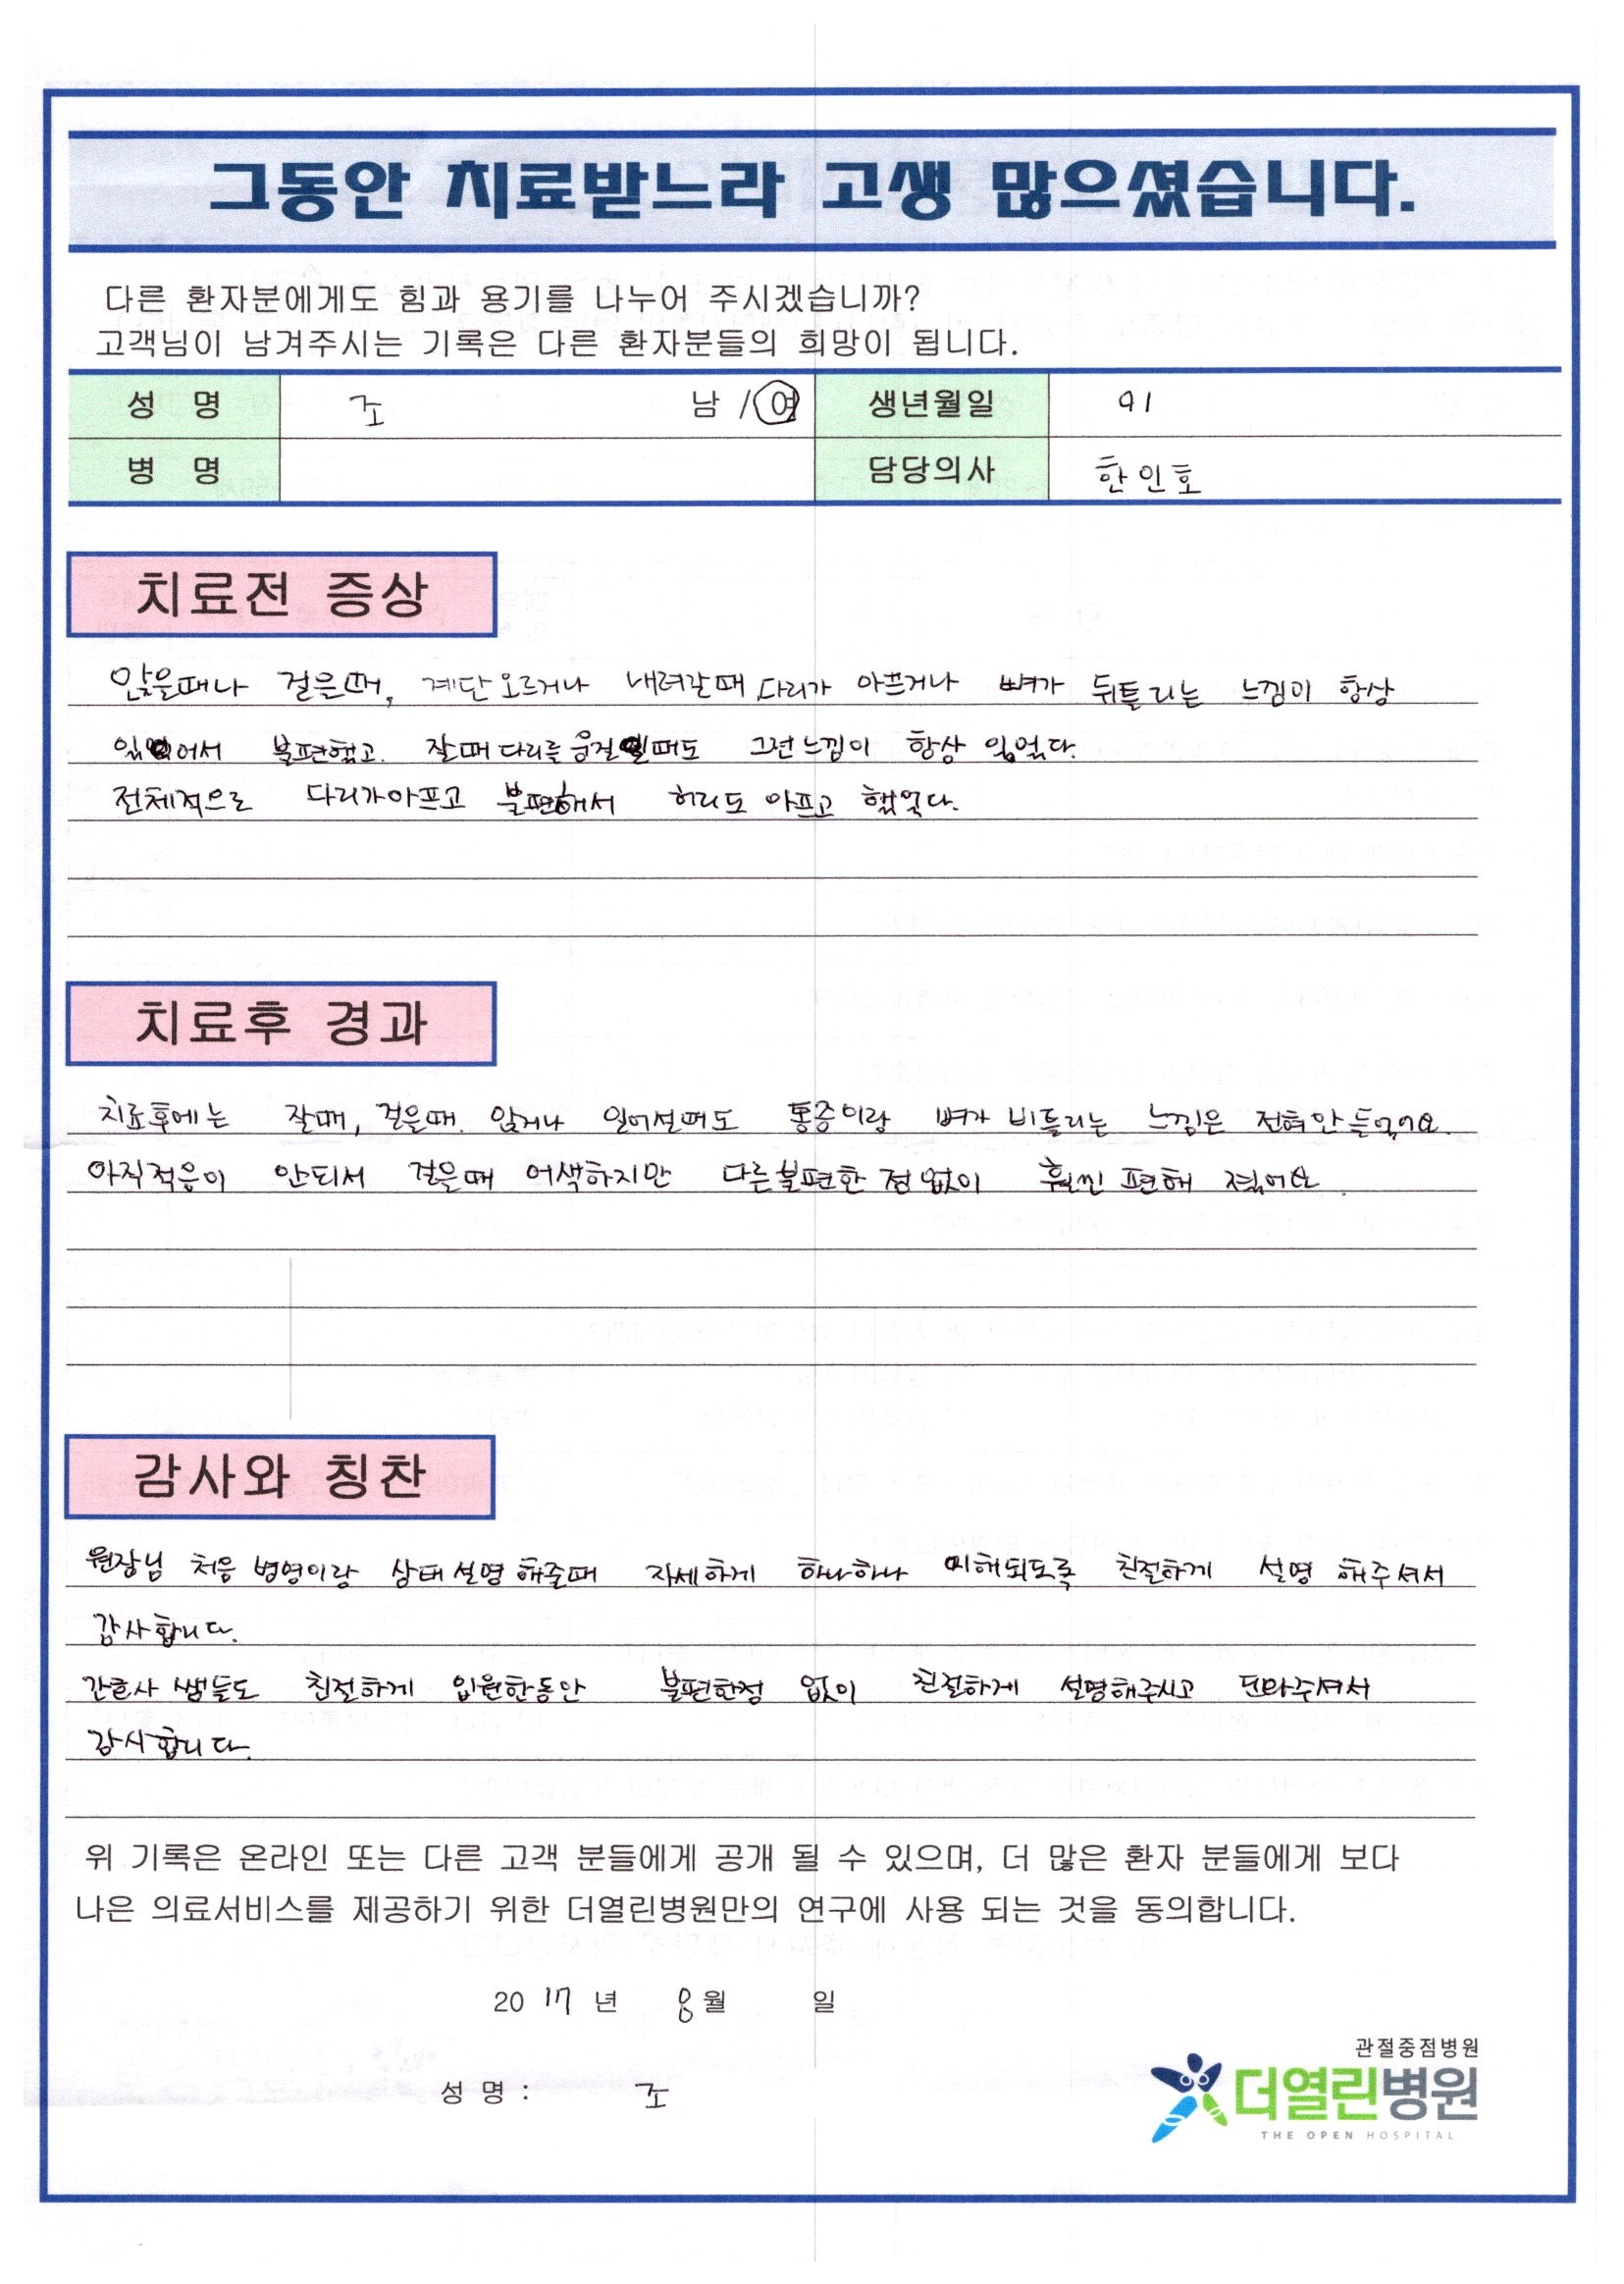 그동안 치료받느라 고생 많으셨습니다.
다른 환자분에게도 힘과 용기를 나누어 주시겠습니까?
고객님이 남겨주시는 기록은 다른 환자분들의 희망이 됩니다.
성 명 조 남 / 여 생년월일 91
병 명 담당의사 한인호
치료전 증상
앉을때나 걸을때, 계단오르거나 내려갈때 다리가 아프거나 뼈가 뒤틀리는 느낌이 항상
있었어서 불편했고. 잘때 다리를 움직일때도 그런느낌이 항상 있었다.
전체적으로 다리가아프고 불편해서 허리도 아프고 했었다.
치료후 경과
치료후에는 잘때, 걸을때. 앉거나 일어설때도 통증이랑 뼈가 비틀리는 느낌은 전혀안들었어요.
아직적응이 안되서 걸을때 어색하지만 다른불편한 점 없이 훨씬 편해 졌어요.
감사와 칭찬
원장님 처음 병명이랑 상태설명해줄때 자세하게 하나하나 이해되도록 친절하게 설명 해주셔서
감사합니다.
간호사 쌤들도 친절하게 입원한동안 불편한점 없이 친절하게 설명해주시고 도와주셔서
감사합니다.
위 기록은 온라인 또는 다른 고객 분들에게 공개 될 수 있으며, 더 많은 환자 분들에게 보다
나은 의료서비스를 제공하기 위한 더열린병원만의 연구에 사용 되는 것을 동의합니다.
2017년 8월 일
성 명 : 조
관절중점병원
더열린병원
THE OPEN HOSPITAL